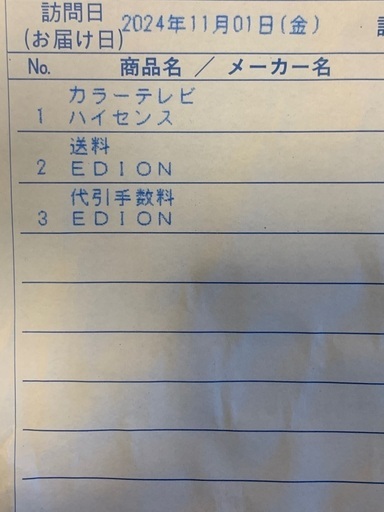 訪問日
(お届け日)
2024年11月01日(金)
No. 商品名 / メーカー名
カラーテレビ
1 ハイセンス
送料
2 EDION
代引手数料
3 EDION